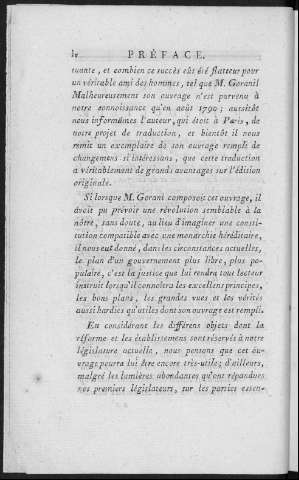 iv PRÉFACE.
tuante, et combien ce succès eût été flatteur pour
un véritable ami des hommes, tel que M. Gorani!
Malheureusement son ouvrage n'est parvenu à
notre connoissance qu'en août 1790; aussitôt
nous informâmes l'auteur, qui étoit à Paris, de
notre projet de traduction, et bientôt il nous
remit un exemplaire de son ouvrage rempli de
changemens si intéressans, que cette traduction
a véritablement de grands avantages sur l'édition
originale.
Si lorsque M. Gorani composoit cet ouvrage, il
avoit pu prévoir une révolution semblable à la
nôtre, sans doute, au lieu d'imaginer une consti-
tution compatible avec une monarchie héréditaire,
il nous eut donné, dans les circonstances actuelles,
le plan d'un gouvernement plus libre, plus po-
pulaire, c'est la justice que lui rendra tout lecteur
instruit lorsqu'il connoîtra les excellens principes,
les bons plans, les grandes vues et les vérités
aussi hardies qu'utiles dont son ouvrage est rempli.
En considérant les différens objets dont la
réforme et les établissemens sont réservés à notre
législature actuelle, nous pensons que cet ou-
vrage pourra lui être encore très-utile; d'ailleurs,
malgré les lumières abondantes qu'ont répandues
nos premiers législateurs, sur les parties essen-